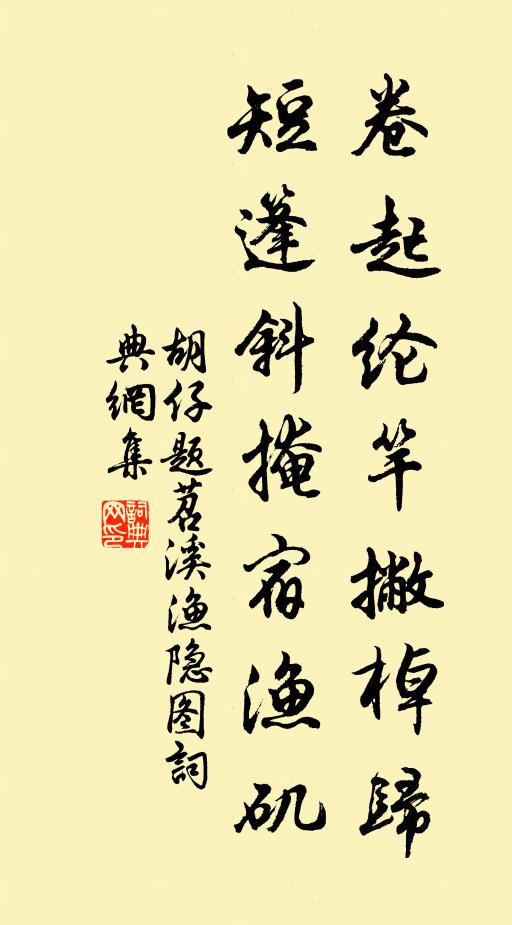 卷起纶竿撇棹歸
短蓬斜掩宿漁矶
胡仔题苕溪漁隐图詞
典網集
詞典网印